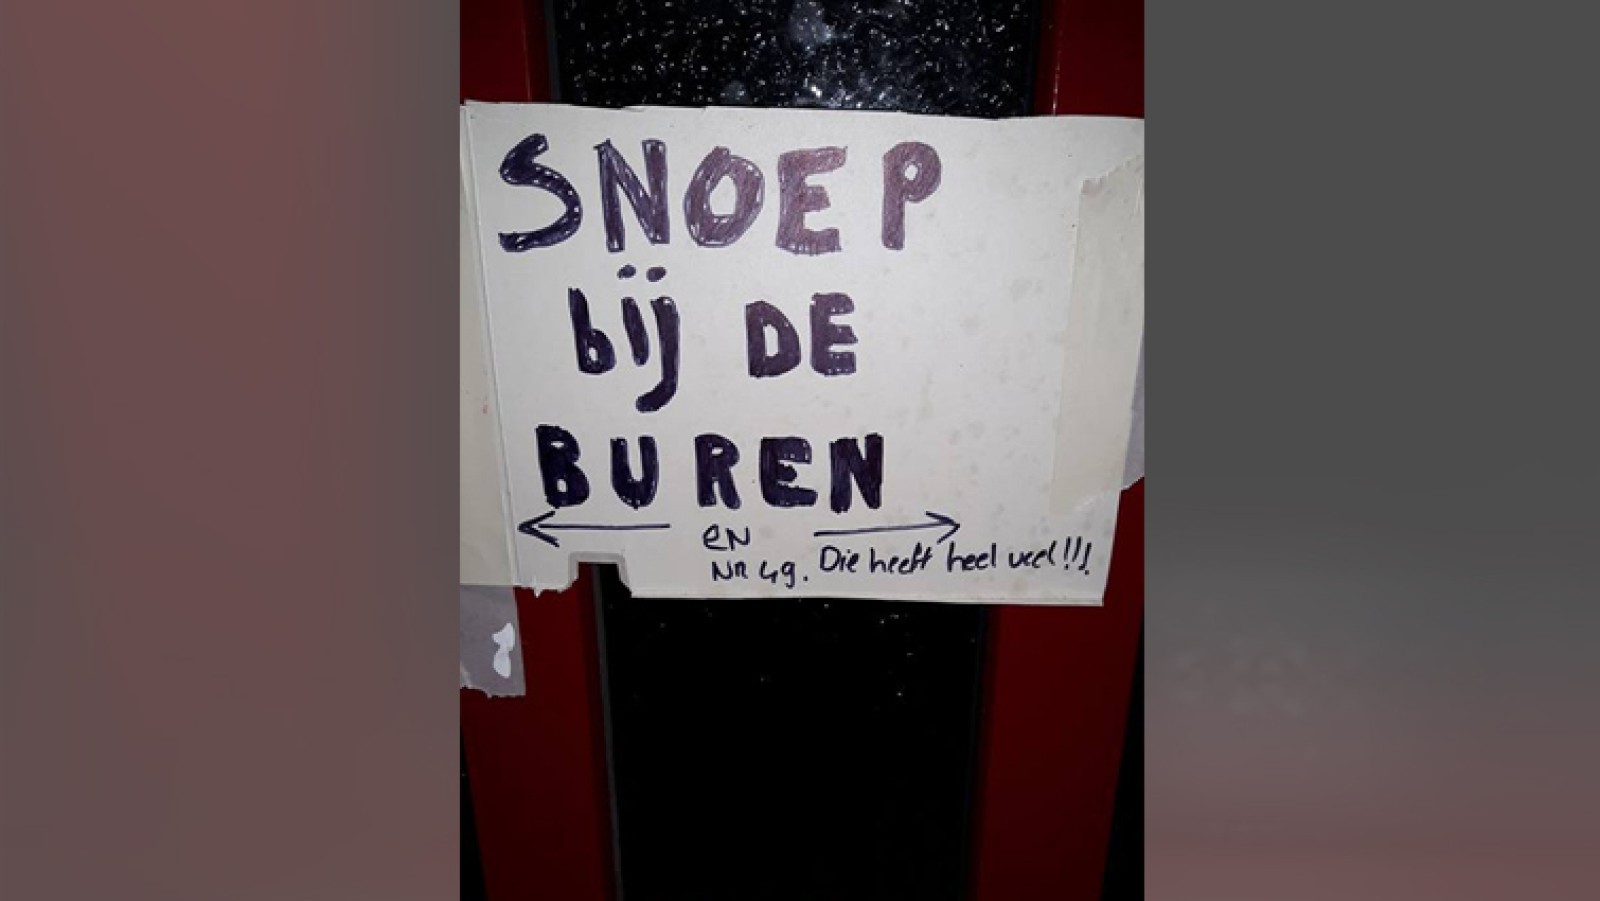 SNOEP
bij DE
BUREN
en
NR 49. Die heeft heel veel!!!